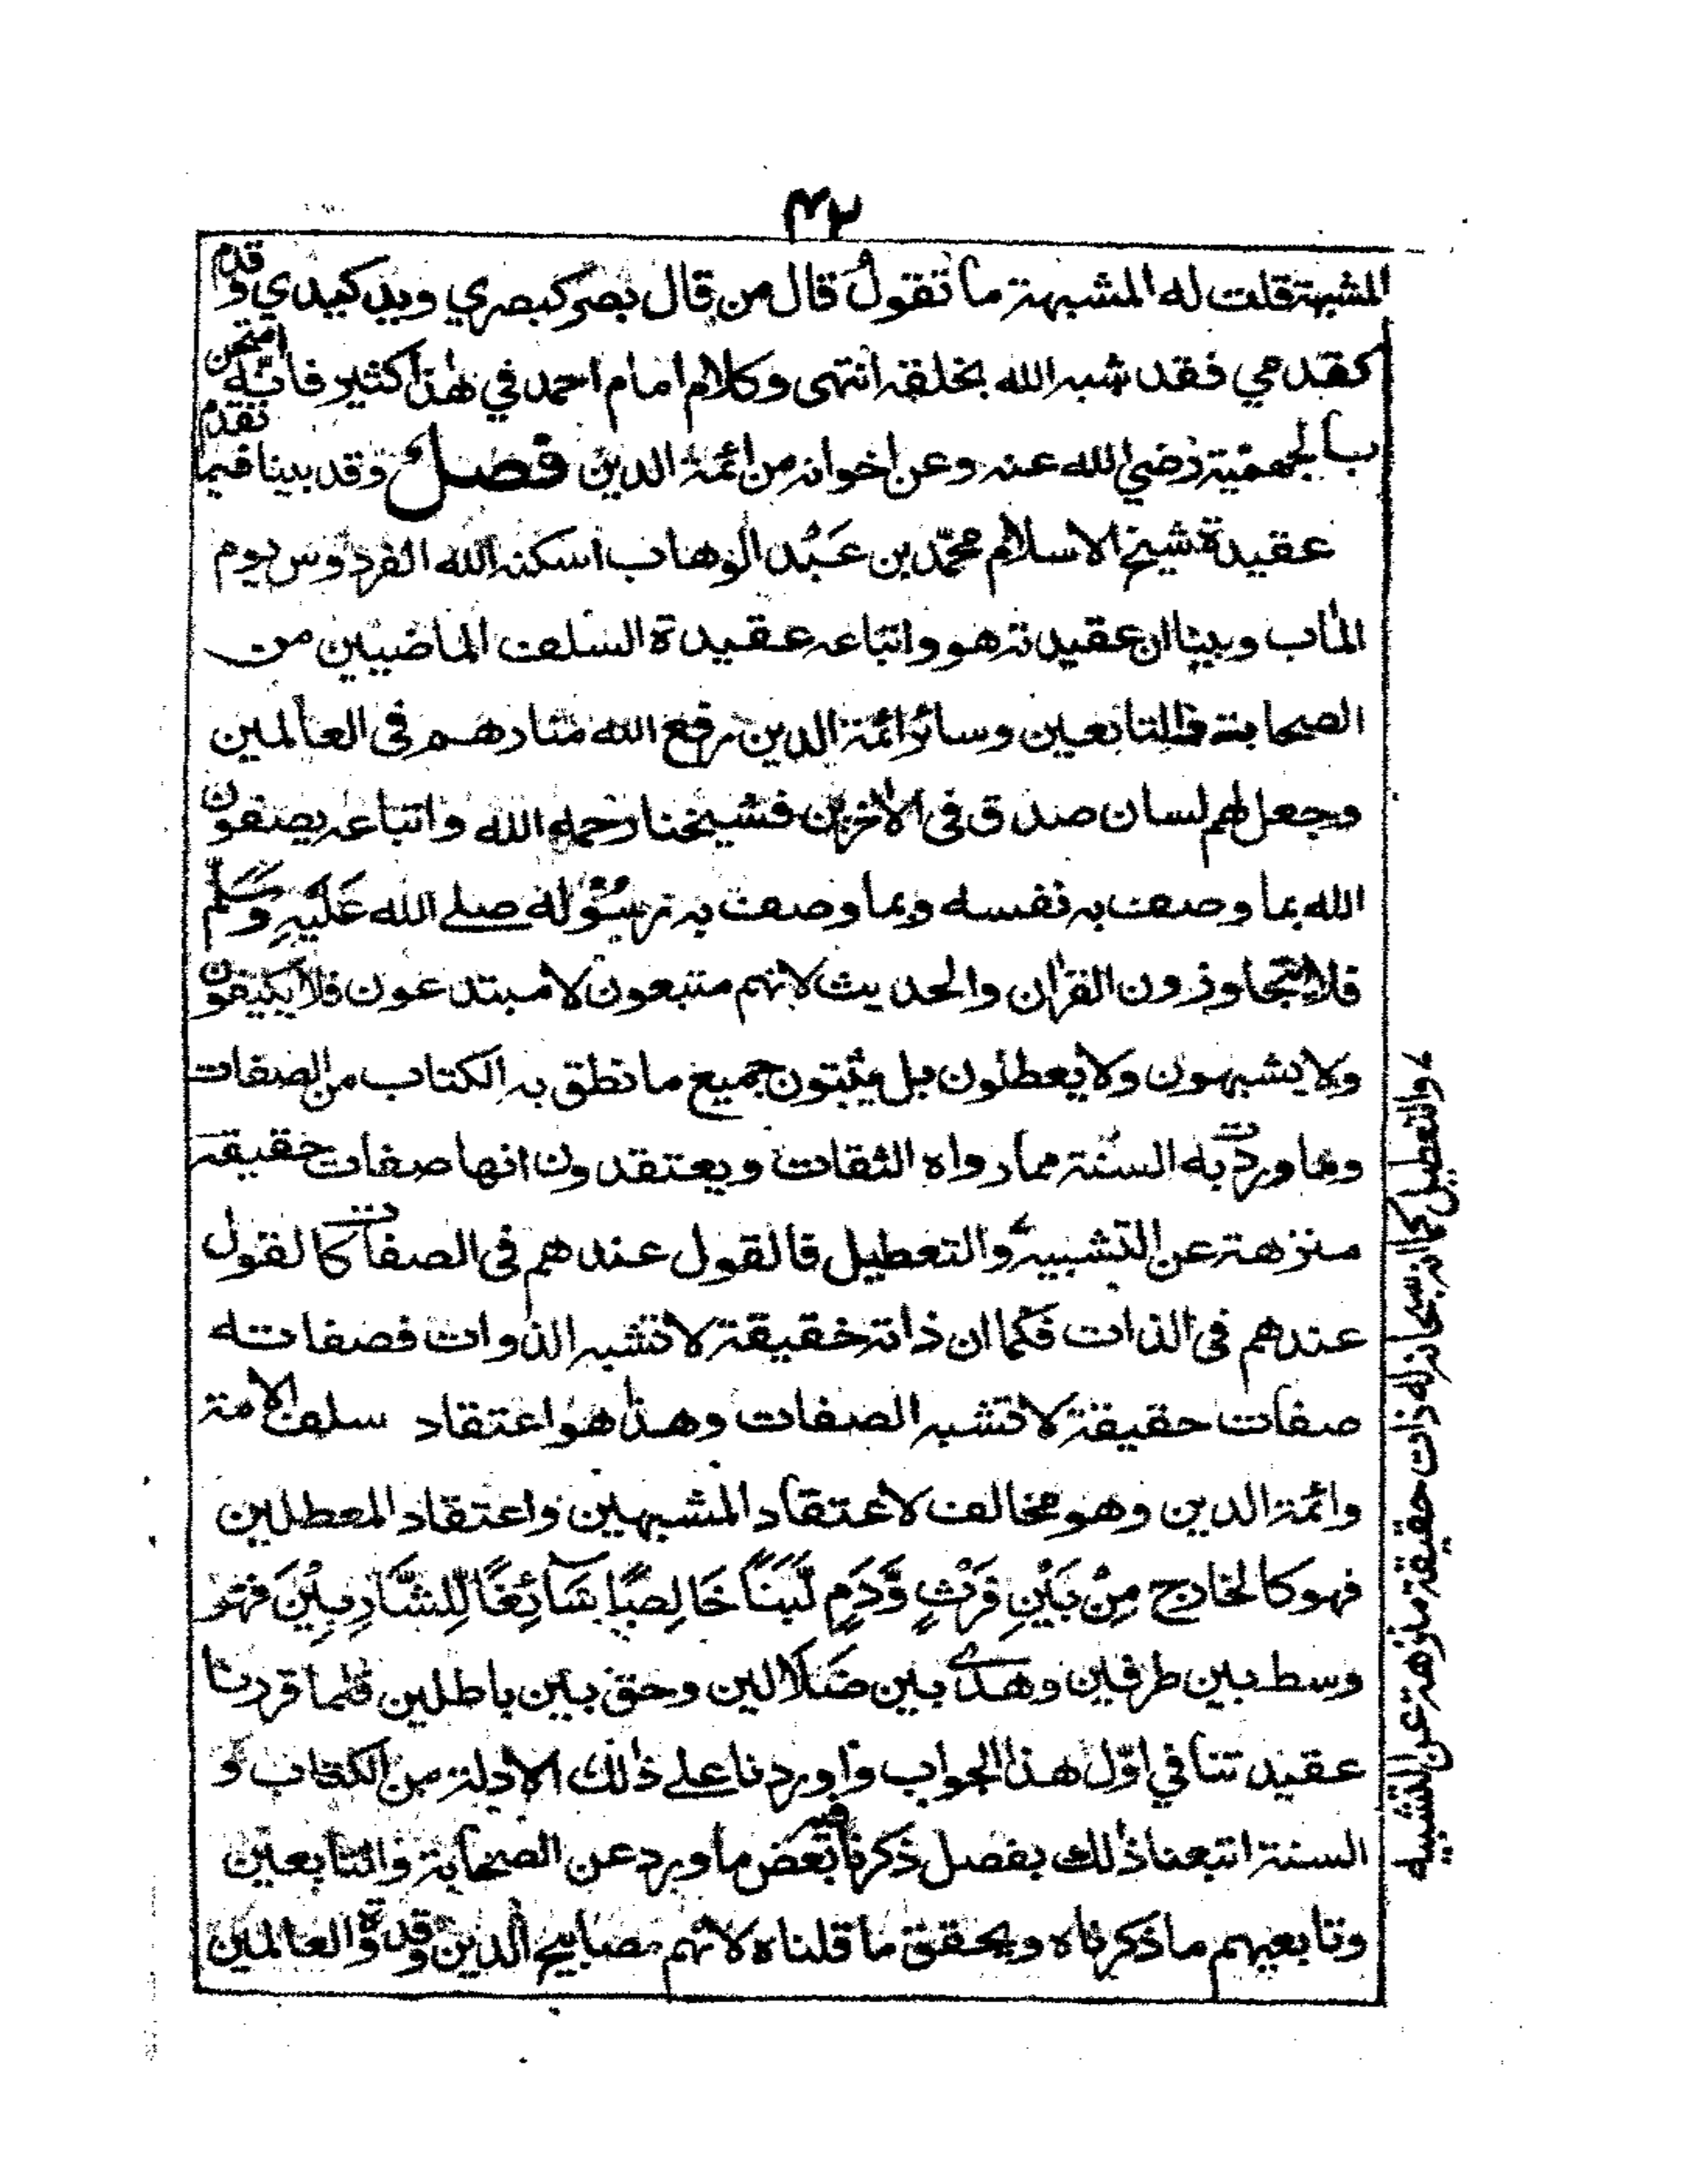 ٤٣
المشبهة قلت له المشبهة ما تقول قال من قال بصر كبصري ويد كيدي وقدم
كقدمي فقد شبه الله بخلقه انتهى وكلام امام احمد في هذا كثير فانه امتحن
بالجهمية رضي الله عنه وعن اخوانه من ائمة الدين فصل وقد بينا فيما تقدم
عقيدة شيخ الاسلام محمد بن عبد الوهاب اسكنه الله الفردوس يوم
المآب وبينا ان عقيدته هو واتباعه عقيدة السلف الماضيين من
الصحابة والتابعين وسائر ائمة الدين رفع الله منارهم فى العالمين
وجعل لهم لسان صدق فى الآخرين فشيخنا رحمه الله واتباعه يصفون
الله بما وصف به نفسه وبما وصف به رسوله صلے الله عَلَيْهِ وسلّم
فلا يتجاوزون القرآن والحديث لانهم متبعون لا مبتدعون فلا يكيفون
ولا يشبهون ولا يعطلون بل يثبتون جميع ما نطق به الكتاب من الصفات
وما وردت به السنة مما رواه الثقات ويعتقدون انها صفات حقيقة
منزهة عن التشبيه والتعطيل فالقول عندهم فى الصفات كالقول
عندهم فى الذات فكما ان ذاته حقيقة لا تشبه الذوات فصفاته
صفات حقيقة لا تشبه الصفات وهذا هو اعتقاد سلف الامة
وائمة الدين وهو مخالف لاعتقاد المشبهين واعتقاد المعطلين
فهو كالخارج مِنْ بَيْنِ فَرْثٍ وَّدَمٍ لَّبَنًا خَالِصًا سَآئِغًا لِّلشَّارِبِيْنَ فهو
وسط بين طرفين وهدى بين ضلالين وحق بين باطلين فلما قررنا
عقيدتنا في اوّل هذا الجواب واوردنا علے ذلك الادلة من الكتاب و
السنة اتبعنا ذلك بفصل ذكرنا فيه بعض ما ورد عن الصحابة والتابعين
وتابعيهم ما ذكرناه ويحقق ما قلناه لانهم مصابيح الدين وقدوة العالمين
والتعطيل كما انه سبحانه له ذات حقيقة منزهة عن التشبيه